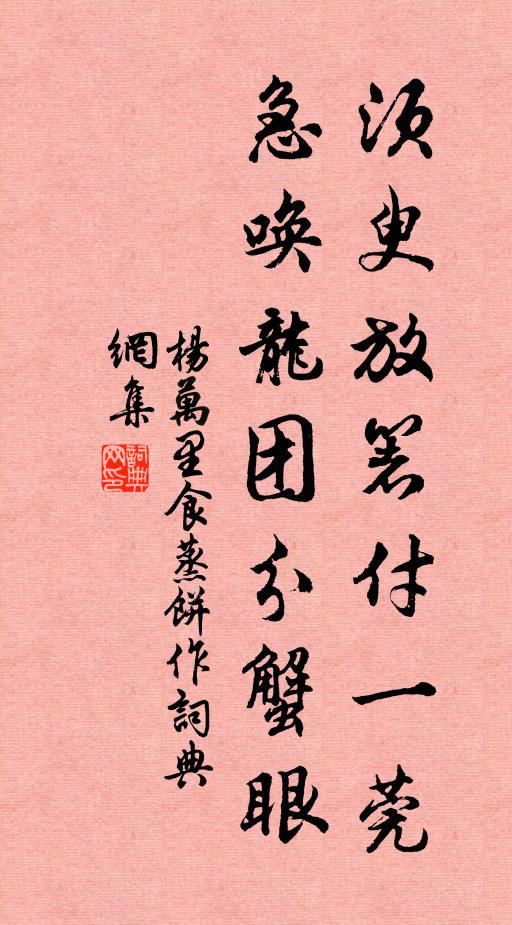 须臾放箸付一莞
急唤龍团分蟹眼
楊萬里食蒸餅作詞典
網集
詞典网印